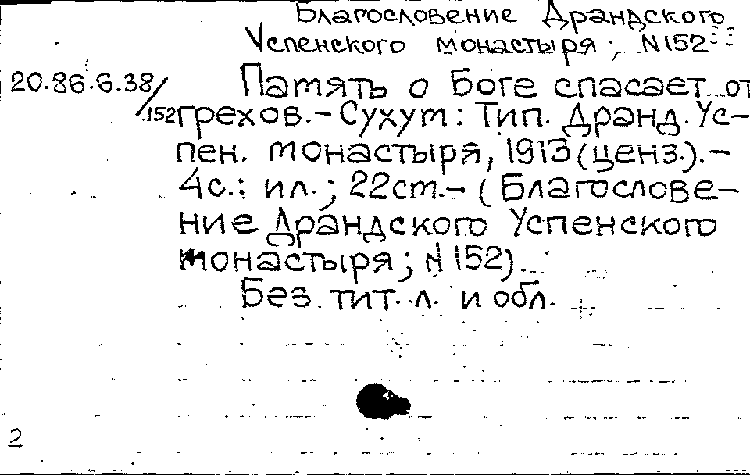 Благословение Драндского
Успенского монастыря; N152
20.86.6.38/152
Память о Боге спасает от
грехов. - Сухум: Тип. Дранд. Ус-
пен. монастыря, 1913 (ценз.). -
4с.: ил.; 22cm. - (Благослове-
ние Драндского Успенского
монастыря; N 152).
Без тит. л. и обл.
2